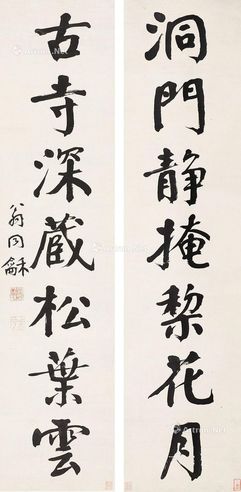 洞門静掩梨花月
古寺深蔵松葉雲
翁同龢